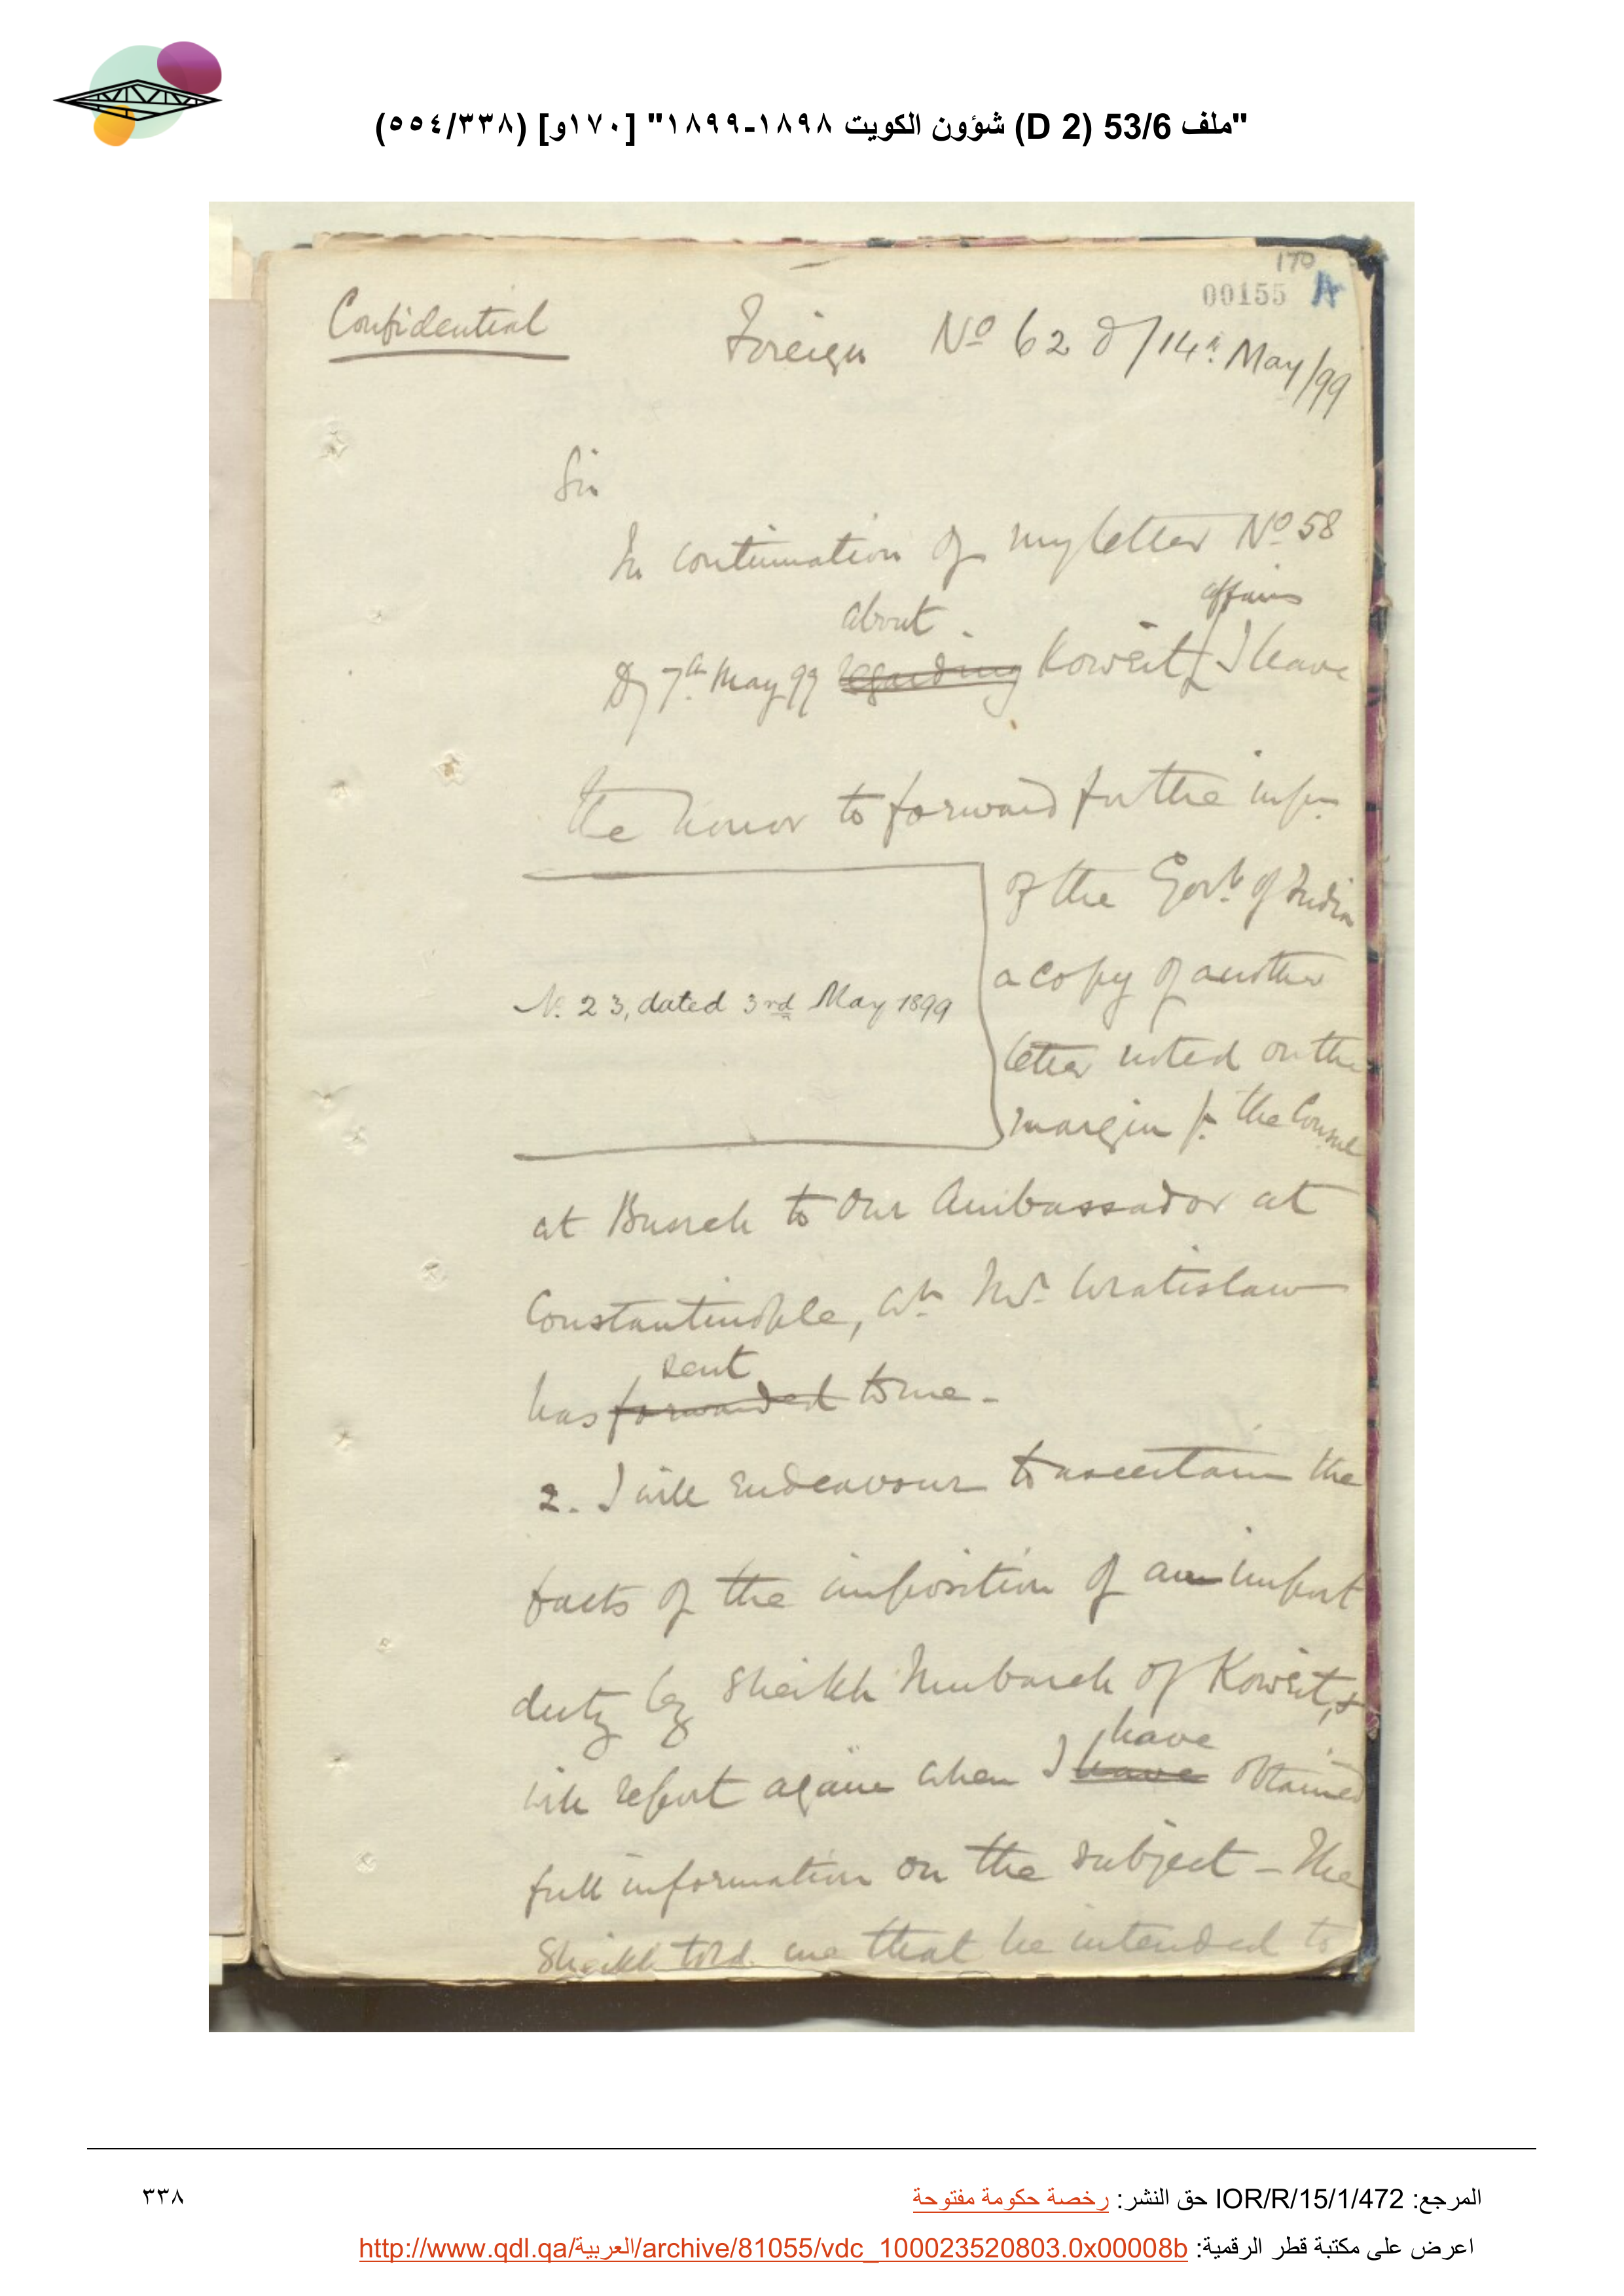 "ملف 53/6 (D 2) شؤون الكويت ١٨٩٨-١٨٩٩" [١٧٠و] (٥٥٤/٣٣٨)
170
00155 A
Confidential
Foreign No 62 d/14th May/99
Sir
In continuation of my letter No 58
affairs
about
d/ 7th May 99 regarding Koweit I have
the honor to forward for the infn
of the Govt of India
a copy of another
No. 23, dated 3rd May 1899
letter noted on the
margin fr. the Consul
at Busreh to Our Ambassador at
Constantinople, wh Mr. Wratislaw
sent
has forwarded to me -
2. I will endeavour to ascertain the
facts of the imposition of an import
duty by Sheikh Mubarek of Koweit, &
have
will report again when I have obtained
full information on the subject - The
Sheikh told me that he intended to
المرجع: IOR/R/15/1/472 حق النشر: رخصة حكومة مفتوحة
٣٣٨
اعرض على مكتبة قطر الرقمية: http://www.qdl.qa/العربية/archive/81055/vdc_100023520803.0x00008b